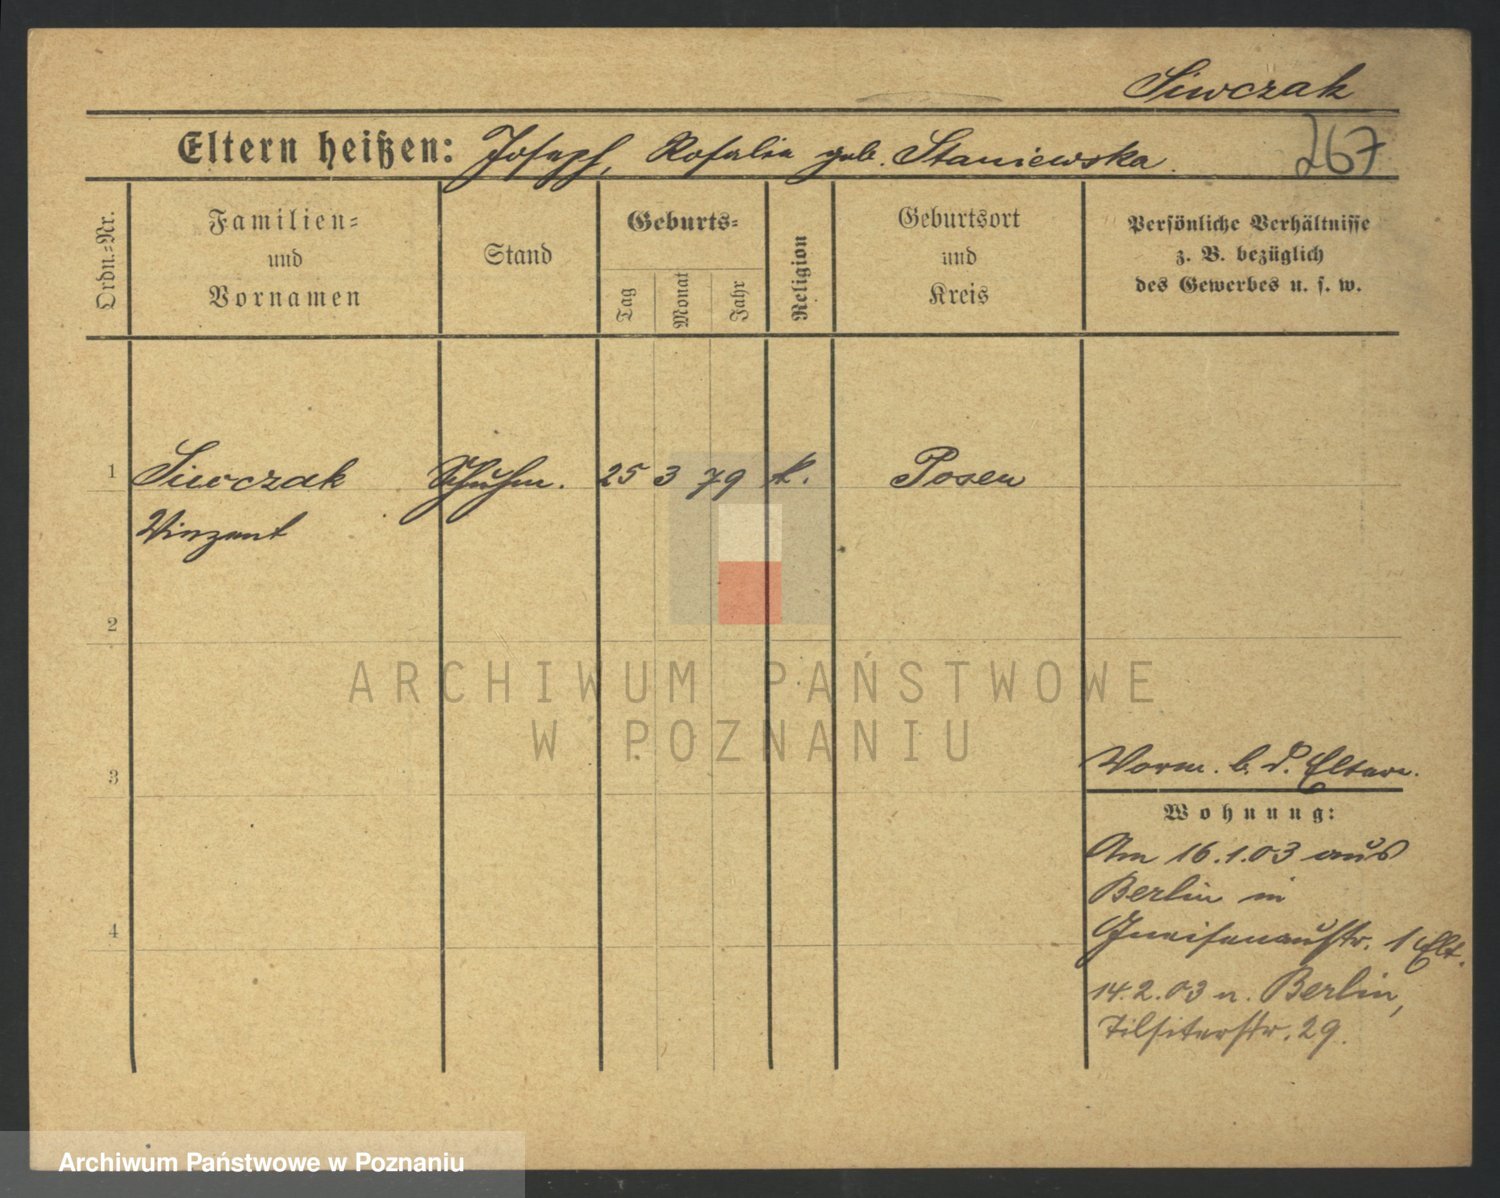 Siwczak
267
Eltern heißen: Joseph, Rosalie geb. Staniewska.
Ordn.-Nr.
Familien- und Vornamen
Stand
Geburts-
Tag
Monat
Jahr
Religion
Geburtsort und Kreis
Persönliche Verhältnisse
z. B. bezüglich
des Gewerbes u. s. w.
1 Siwczak Schuhm. 25 3 79 k. Posen
Vinzent
2
ARCHIWUM PAŃSTWOWE
W POZNANIU
3
Vorm. b. d. Eltern.
Wohnung:
Am 16.1.03 aus
Berlin in
4
Gneisenaustr. 1 Elt.
14.2.03 n. Berlin,
Tilsiterstr. 29.
Archiwum Państwowe w Poznaniu